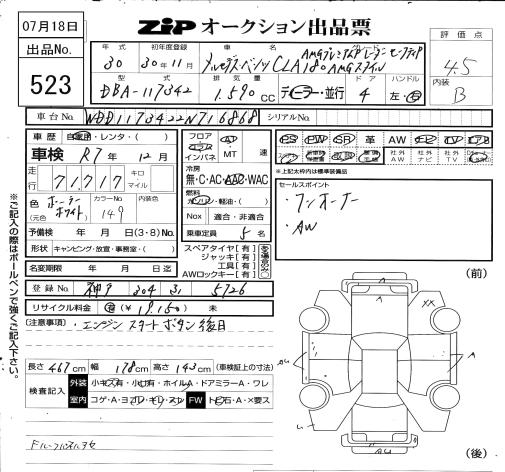 07月18日
ZIP オークション出品票
評価点
4.5
内装
B
出品No.
523
年式 初年度登録 車名 グレード
30 30年11月 メルセデス・ベンツ CLA180 AMGスタイル
型式 排気量 ドア ハンドル
DBA-117342 1,590cc 4 左・右
車台No. WDD1173422N716868 シリアルNo.
車歴 自家用・レンタ・( )
フロア インパネ AT・MT 速
PS PW SR 革 AW ナビ TV エアB
社外AW 社外ナビ 社外TV
※上記太枠内は標準装備品
車検 R7年 12月
冷房
無・C・AC・AAC・WAC
走行 71,717 キロ マイル
燃料
ガソリン・軽油・( )
セールスポイント
・ワンオーナー
・AW
色(元色) ポーラーホワイト カラーNo. 149 内装色
Nox 適合・非適合
予備検 年 月 日(3・8)No.
乗車定員 5名
形状 キャンピング・放宣・事務室・( )
スペアタイヤ[有・無]
ジャッキ[有・無]
工具[有・無]
AWロックキー[有・無]
名変期限 年 月 日迄
登録No. 神戸 304 す 5726
(前)
リサイクル料金 有(¥ 19,150) 未
(注意事項) ・エンジンスタートボタン後日
※ご記入の際はボールペンで強くご記入下さい。
長さ 467cm 幅 178cm 高さ 143cm (車検証上の寸法)
検査記入 外装 小キズ有・小凹有・ホイルA・ドアミラーA・ワレ
室内 コゲ・A・ヨゴレ・キレ・スレ FW トビ石・A・×要ス
(後)